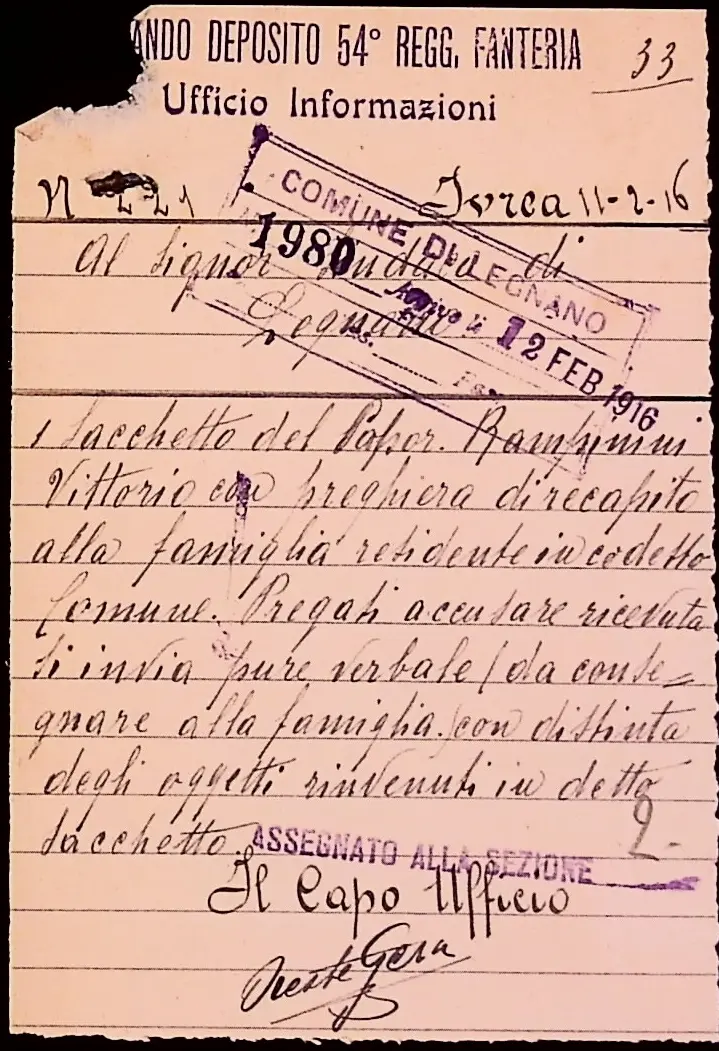 ANDO DEPOSITO 54° REGG. FANTERIA
33
Ufficio Informazioni
N 221 Ivrea 11-2-16
COMUNE DI LEGNANO
1980
Arrivo li 12 FEB 1916
Al Signor Sindaco di
Legnano
1 Sacchetto del Capor. Rampinini
Vittorio con preghiera di recapito
alla famiglia residente in codesto
Comune. Pregasi accusare ricevuta
Si invia pure verbale (da conse=
gnare alla famiglia) con distinta
degli oggetti rinvenuti in detto
Sacchetto.
2-
ASSEGNATO ALLA SEZIONE
Il Capo Ufficio
Oreste Gera